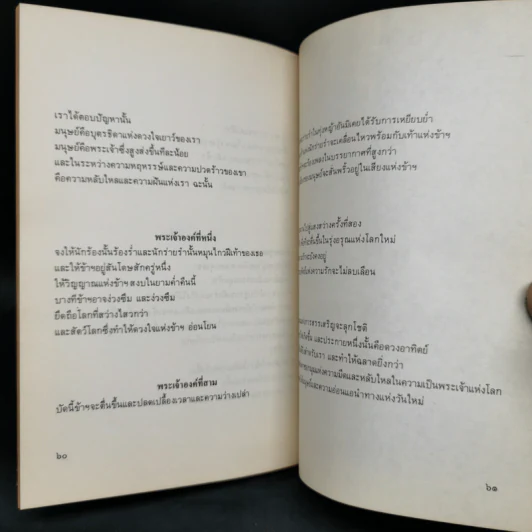 เราได้ตอบปัญหานั้น
มนุษย์คือบุตรธิดาแห่งดวงใจเยาว์ของเรา
มนุษย์คือพระเจ้าซึ่งสูงส่งขึ้นทีละน้อย
และในระหว่างความพฤหรรษ์และความปวดร้าวของเขา
คือความหลับใหลและความฝันแห่งเรา ฉะนั้น
พระเจ้าองค์ที่หนึ่ง
จงให้นักร้องนั้นร้องร่ำและนักร่ายรำนั้นหมุนไกวฝีเท้าของเธอ
และให้ข้าฯอยู่สันโดษสักครู่หนึ่ง
ให้วิญญาณแห่งข้าฯ สงบในยามค่ำคืนนี้
บางทีข้าฯอาจง่วงซึม และง่วงซึม
ยึดถือโลกที่สว่างไสวกว่า
และสัตว์โลกซึ่งทำให้ดวงใจแห่งข้าฯ อ่อนโยน
พระเจ้าองค์ที่สาม
บัดนี้ข้าฯจะตื่นขึ้นและปลดเปลื้องเวลาและความว่างเปล่า
๖๐
ในทุ่งหญ้าอันมิเคยได้รับการเหยียบย่ำ
จะเคลื่อนไหวพร้อมกับเท้าแห่งข้าฯ
ในบรรยากาศที่สูงกว่า
จะสั่นพริ้วอยู่ในเสียงแห่งข้าฯ
สว่างครั้งที่สอง
ขึ้นในรุ่งอรุณแห่งโลกใหม่
ความรักจะไม่ลบเลือน
จะลุกโชติ
และประกายหนึ่งนั้นคือดวงอาทิตย์
และทำให้ฉลาดยิ่งกว่า
แห่งความมืดและหลับไหลในความเป็นพระเจ้าแห่งโลก
และความอ่อนแอนำทางแห่งวันใหม่
๖๑